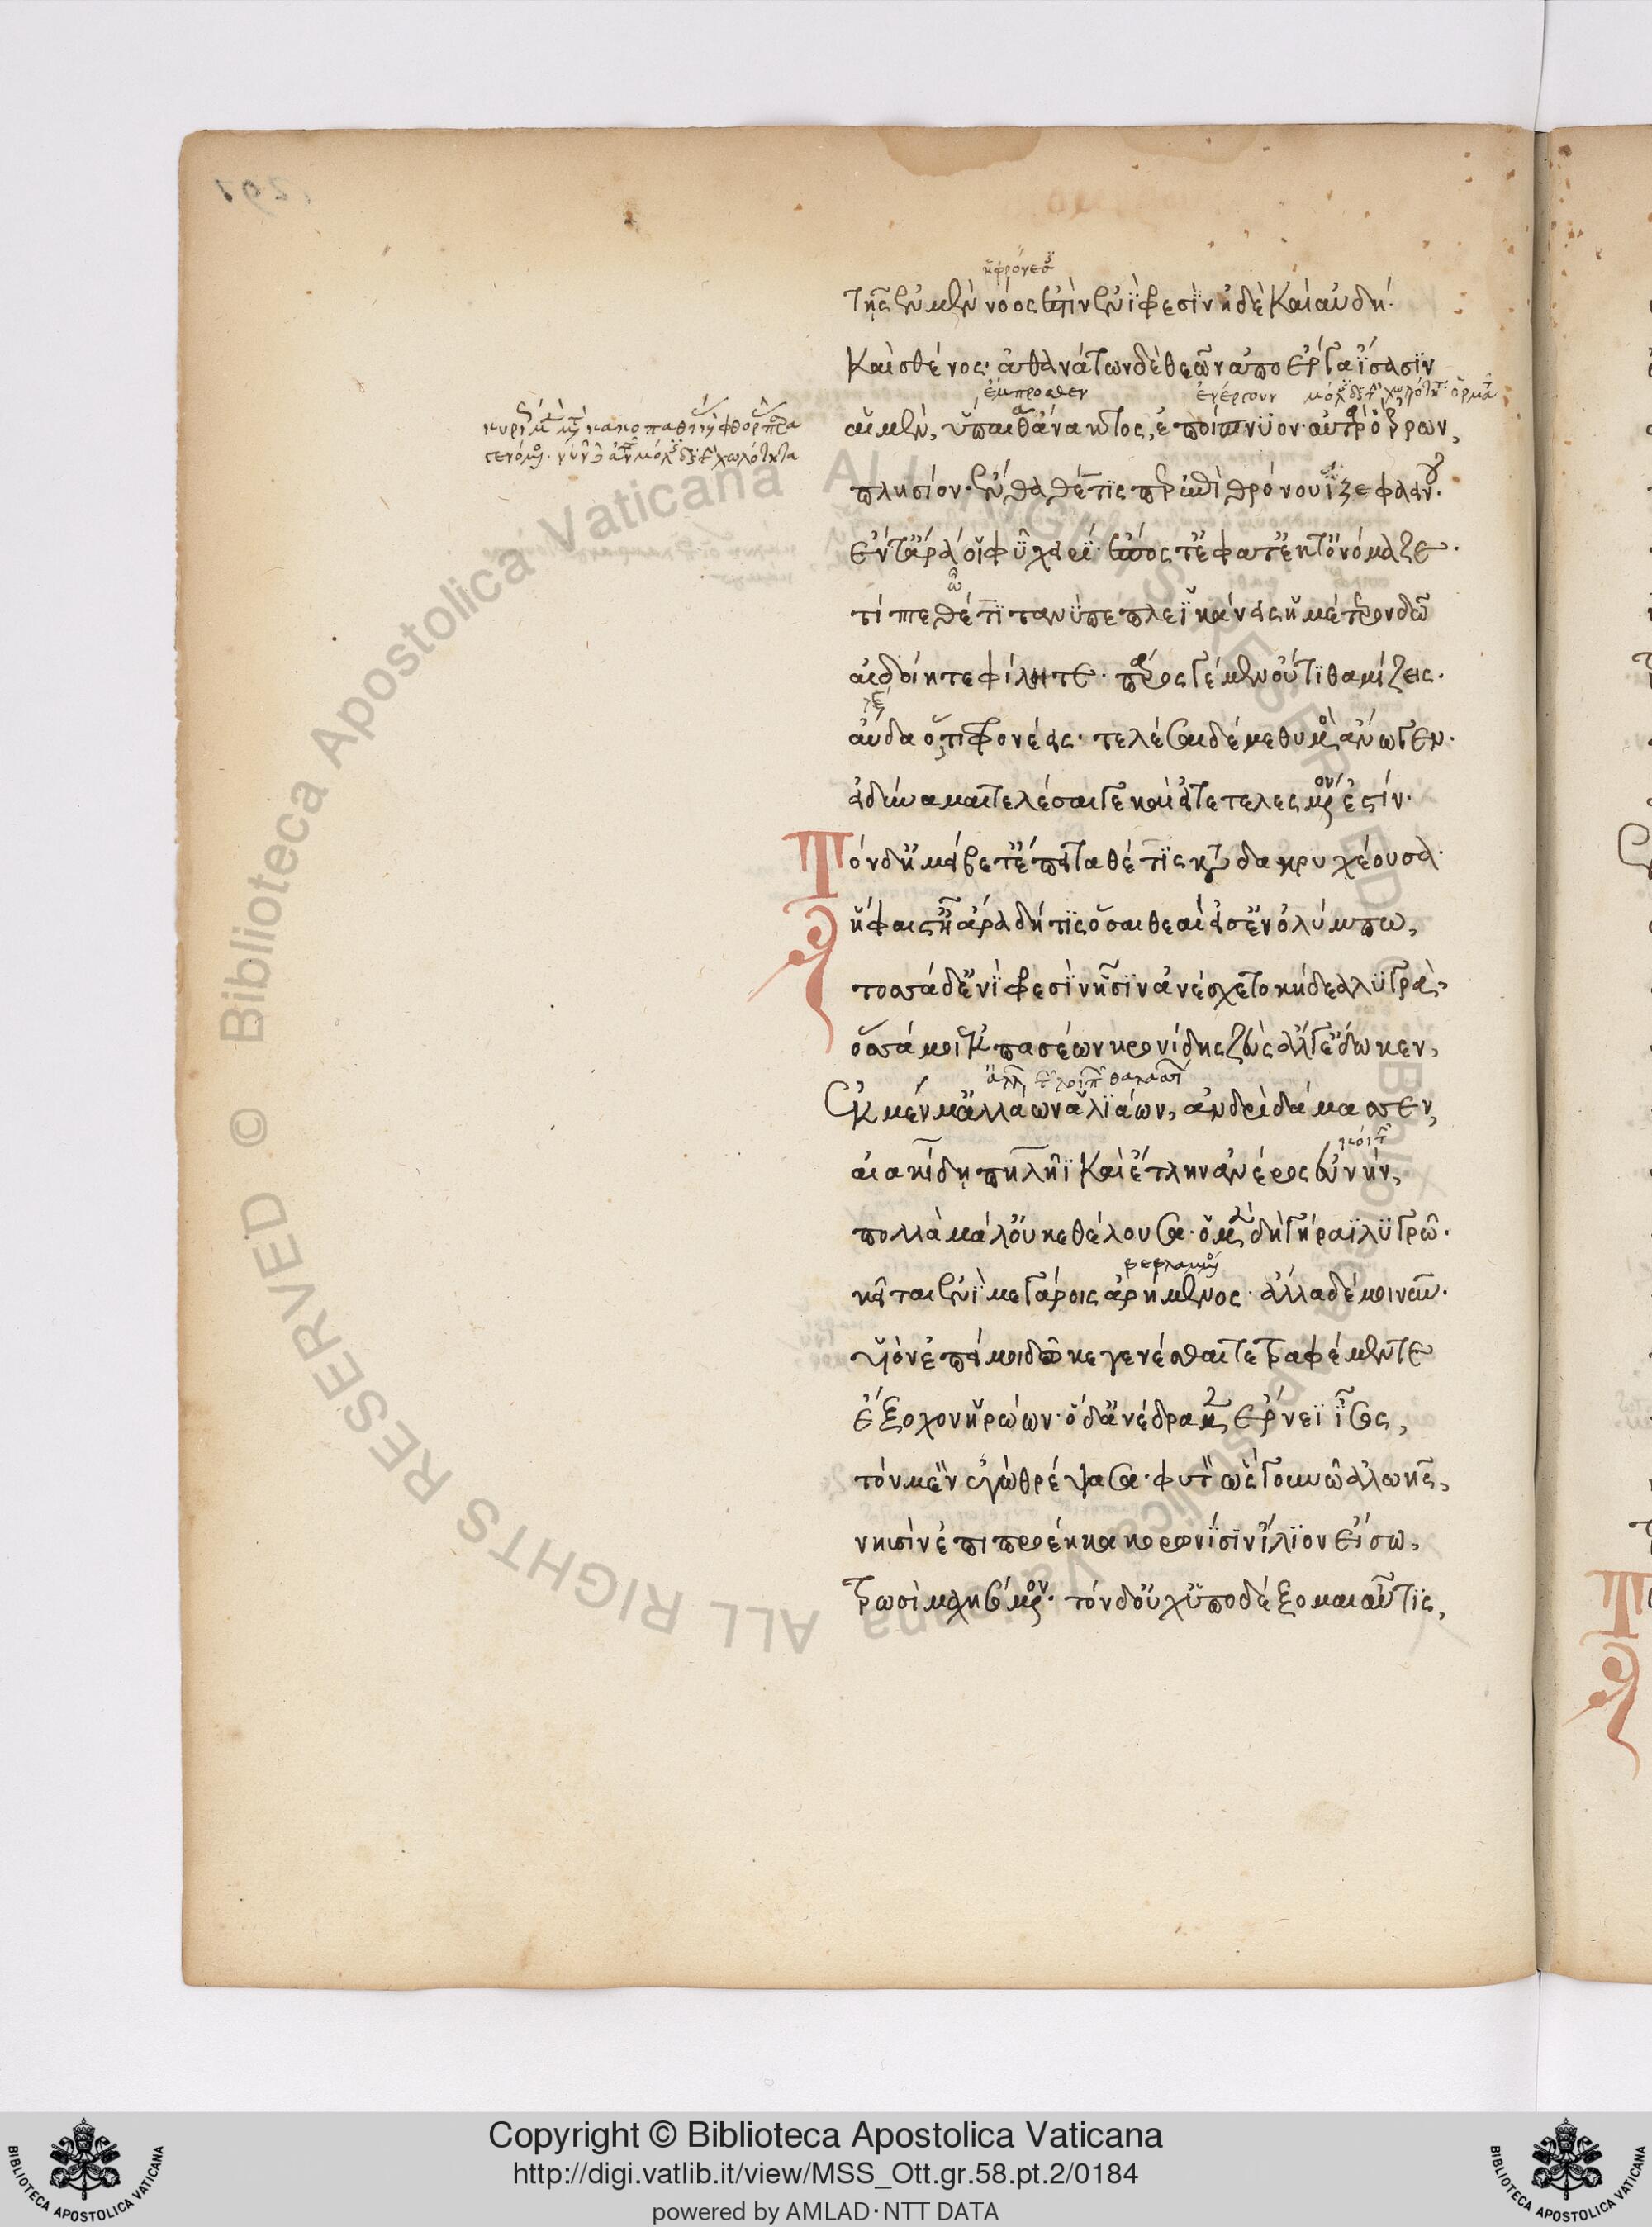 ἡ φρόνησις
τῆς ἐν μὲν νόος ἐστὶν ἐνὶ φρεσὶν ἠδὲ καὶ αὐδή·
καὶ σθένος· ἀθανάτων δὲ θεῶν ἄπο ἔργα ἴσασιν
ἔμπροσθεν ἐνέργουν
αἳ μὲν, ὕπαιθα ἄνακτος, ἐποίπνυον· αὐτὰρ ὃ ἔρρων,
πλησίον· ἔνθα θέτις περ ἐπὶ θρόνου ἷζε φαεινοῦ·
ἔν τ' ἄρά οἱ φῦ χειρί· ἔπος τ' ἔφατ' ἔκ τ' ὀνόμαζε·
τίπτε θέτι τανύπεπλε ἱκάνεις ἡμέτερον δῶ
αἰδοίη τε φίλη τε· πάρος γε μὲν οὔτι θαμίζεις·
αὔδα ὅ τι φρονέεις· τελέσαι δέ με θυμὸς ἄνωγεν·
εἰ δύναμαι τελέσαι γε καὶ εἰ τετελεσμένον ἐστίν·
Τὸν δ' ἠμείβετ' ἔπειτα θέτις κατὰ δακρυχέουσα·
ἥφαιστ' ἦ ἄρα δή τις ὅσαι θεαί εἰσ' ἐν ὀλύμπω,
τοσσάδ' ἐνὶ φρεσὶν ᾗσιν ἀνέσχετο κήδεα λυγρὰ·
ὅσσά μοι ἐκ πασέων κρονίδης ζεὺς ἄλγε' ἔδωκεν,
Ἐκ μέν μ' ἀλλάων ἁλιάων, ἀνδρὶ δάμασσεν,
αἰακίδῃ πηλῆϊ καὶ ἔτλην ἀνέρος εὐνήν,
πολλὰ μάλ' οὐκ ἐθέλουσα· ὃ μὲν δὴ γήραϊ λυγρῶ·
κεῖται ἐνὶ μεγάροις ἀρημένος· ἄλλα δέ μοι νῦν·
υἱὸν ἐπεί μοι δῶκε γενέσθαι τε τραφέμεν τε
ἔξοχον ἡρώων· ὃ δ' ἀνέδραμεν ἔρνεϊ ἶσος,
τὸν μὲν ἐγὼ θρέψασα· φυτὸν ὣς γουνῶ ἀλωῆς,
νηυσὶν ἐπιπροέηκα κορωνίσιν ἴλιον εἴσω,
τρωσὶ μαχησόμενον· τὸν δ' οὐχ ὑποδέξομαι αὖτις,
Copyright © Biblioteca Apostolica Vaticana
http://digi.vatlib.it/view/MSS_Ott.gr.58.pt.2/0184
powered by AMLAD·NTT DATA